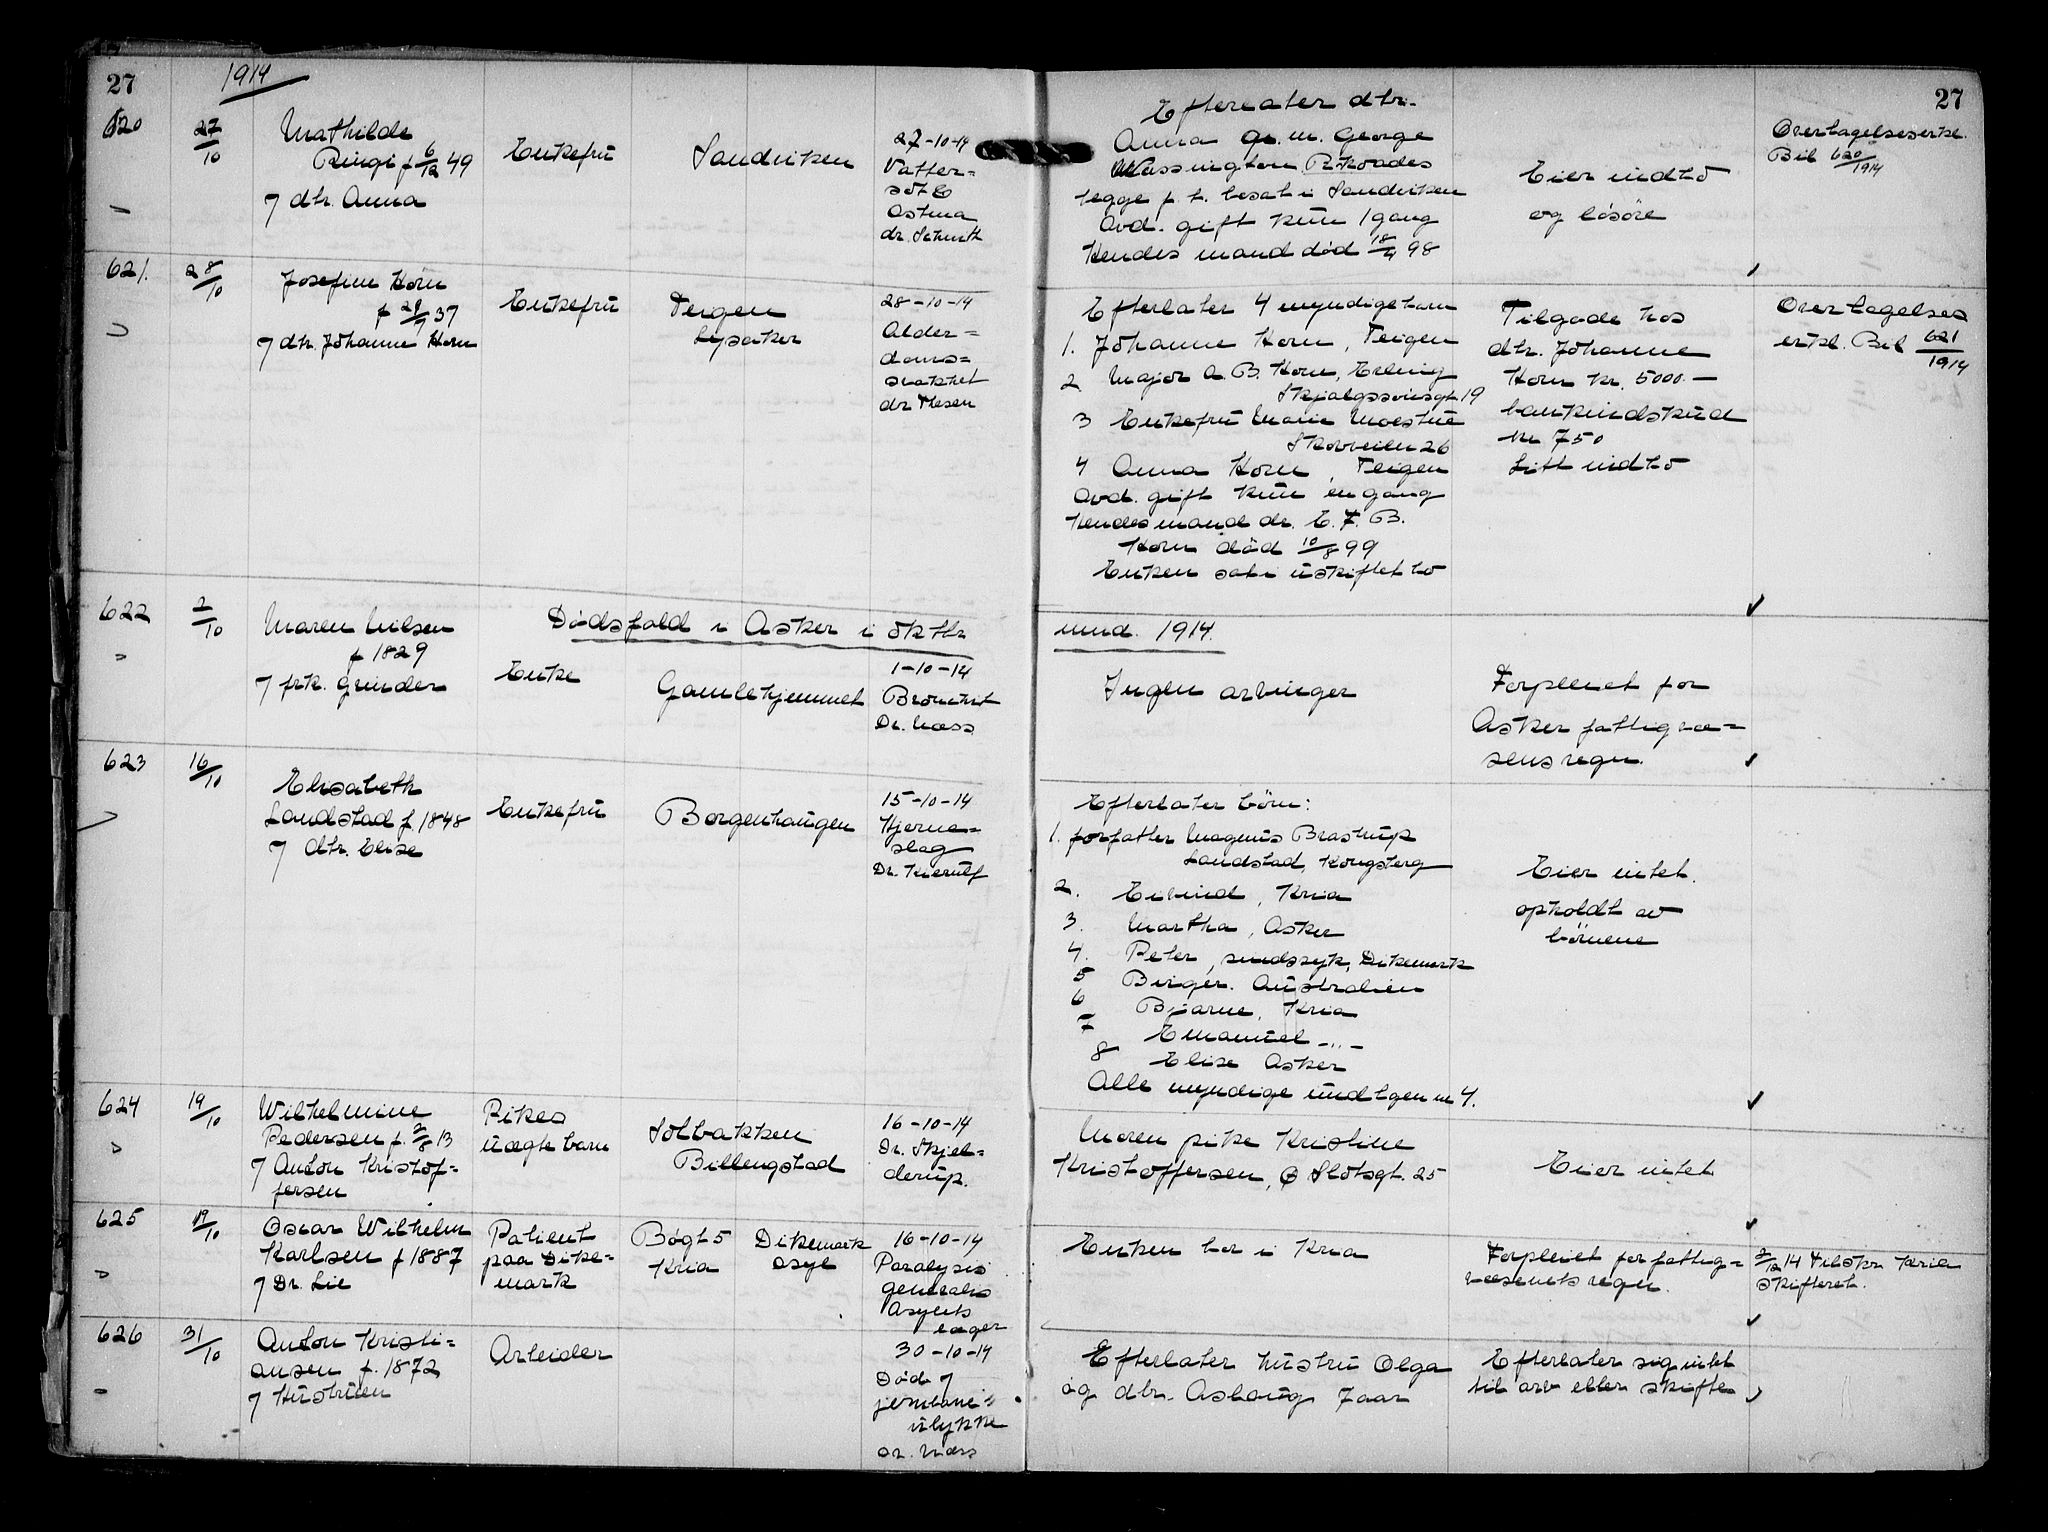 27
1914
27
620
27/10
Mathilde
Ringi f 6/12 49
7 dtr. Anna
Enkefru
Sandviken
27-10-14
Vatter=
sot &
Astma
dr. Schmith
Efterlater dtr.
Anna G. m. George
Wassington
legge p. t. bosat i Sandviken
Avd. gift kun 1 gang
Hendes mand död 18/4 98
Eier indbo
og lösöre
Overtagelseserkl.
Bil 620/1914
621.
28/10
Josefine Horn
f 29/7 37
7 dtr. Johanne Horn
Enkefru
Teigen
Lysaker
28-10-14
Alder=
doms=
svakhet
dr Thesen
Efterlater 4 myndige barn
1. Johanne Horn, Teigen
2 Major A. B. Horn, Erling
Skjalgssönsgt 19
3 Enkefru Marie Moestue
Skovveien 26
4 Anna Horn, Teigen
Avd. gift kun en gang
Hendes mand dr. E. F. B.
Horn död 10/8 99
Enken sat i uskiftet bo
Tilgode hos
dtr. Johanne
Horn kr. 5000.-
bankindskud
kr 750
Litt indbo
Overtagelses
erkl. Bil 621/1914
622
2/10
Maren Nilsen
f 1829
7 frk. Grinder
Dödsfald i Asker i oktbr
mnd. 1914.
Enke
Gamlehjemmet
1-10-14
Bronchit
Dr. Næss
Ingen arvinger
Forpleiet for
Asker fattigvæ=
sens regn.
623
16/10
Elisabeth
Landstad f 1848
7 dtr. Elise
Enkefru
Borgenhaugen
15-10-14
Hjerne=
slag
Dr. Kierulf
Efterlater börn:
1. forfatter Magnus Brostrup
Landstad, Kongsberg
2. Eivind, Kria
3. Martha, Asker
4. Peter, sindssyk, Dikemark
5 Birger. Australien
6 Bjarne, Kria
7 Emanuel -"-
8 Elise Asker
Alle myndige undtgen nr 4.
Eier intet.
opholdt av
börnene
624
19/10
Wilhelmine
Pedersen f. 2/8 13
7 Anton Kristof=
fersen
Pikes
uægte barn
Solbakken
Billingstad
16-10-14
Dr. Skjel=
derup.
Moren pike Kristine
Kristoffersen, Ø Slotsgt. 25
Eier intet
625
19/10
Oscar Wilhelm
Karlsen f 1887
7 Dr. Lie
Patient
paa Dike=
mark
Bögt 5
Kria
Dikemark
asyl
16-10-14
Paralysis
generalis
Asylets
læger
Enken bor i Kria
Forpleiet for fattig=
væsenets regn.
2/12 14 tilskr. Kria
skifteret.
626
31/10
Anton Kristi=
ansen f. 1872
7 Hustruen
Arbeider
30-10-14
Död v
jernbane
ulykke
dr. Næss
Efterlater hustru Olga
og dtr. Aslaug 7 aar
Efterlater sig intet
til arv eller skifte